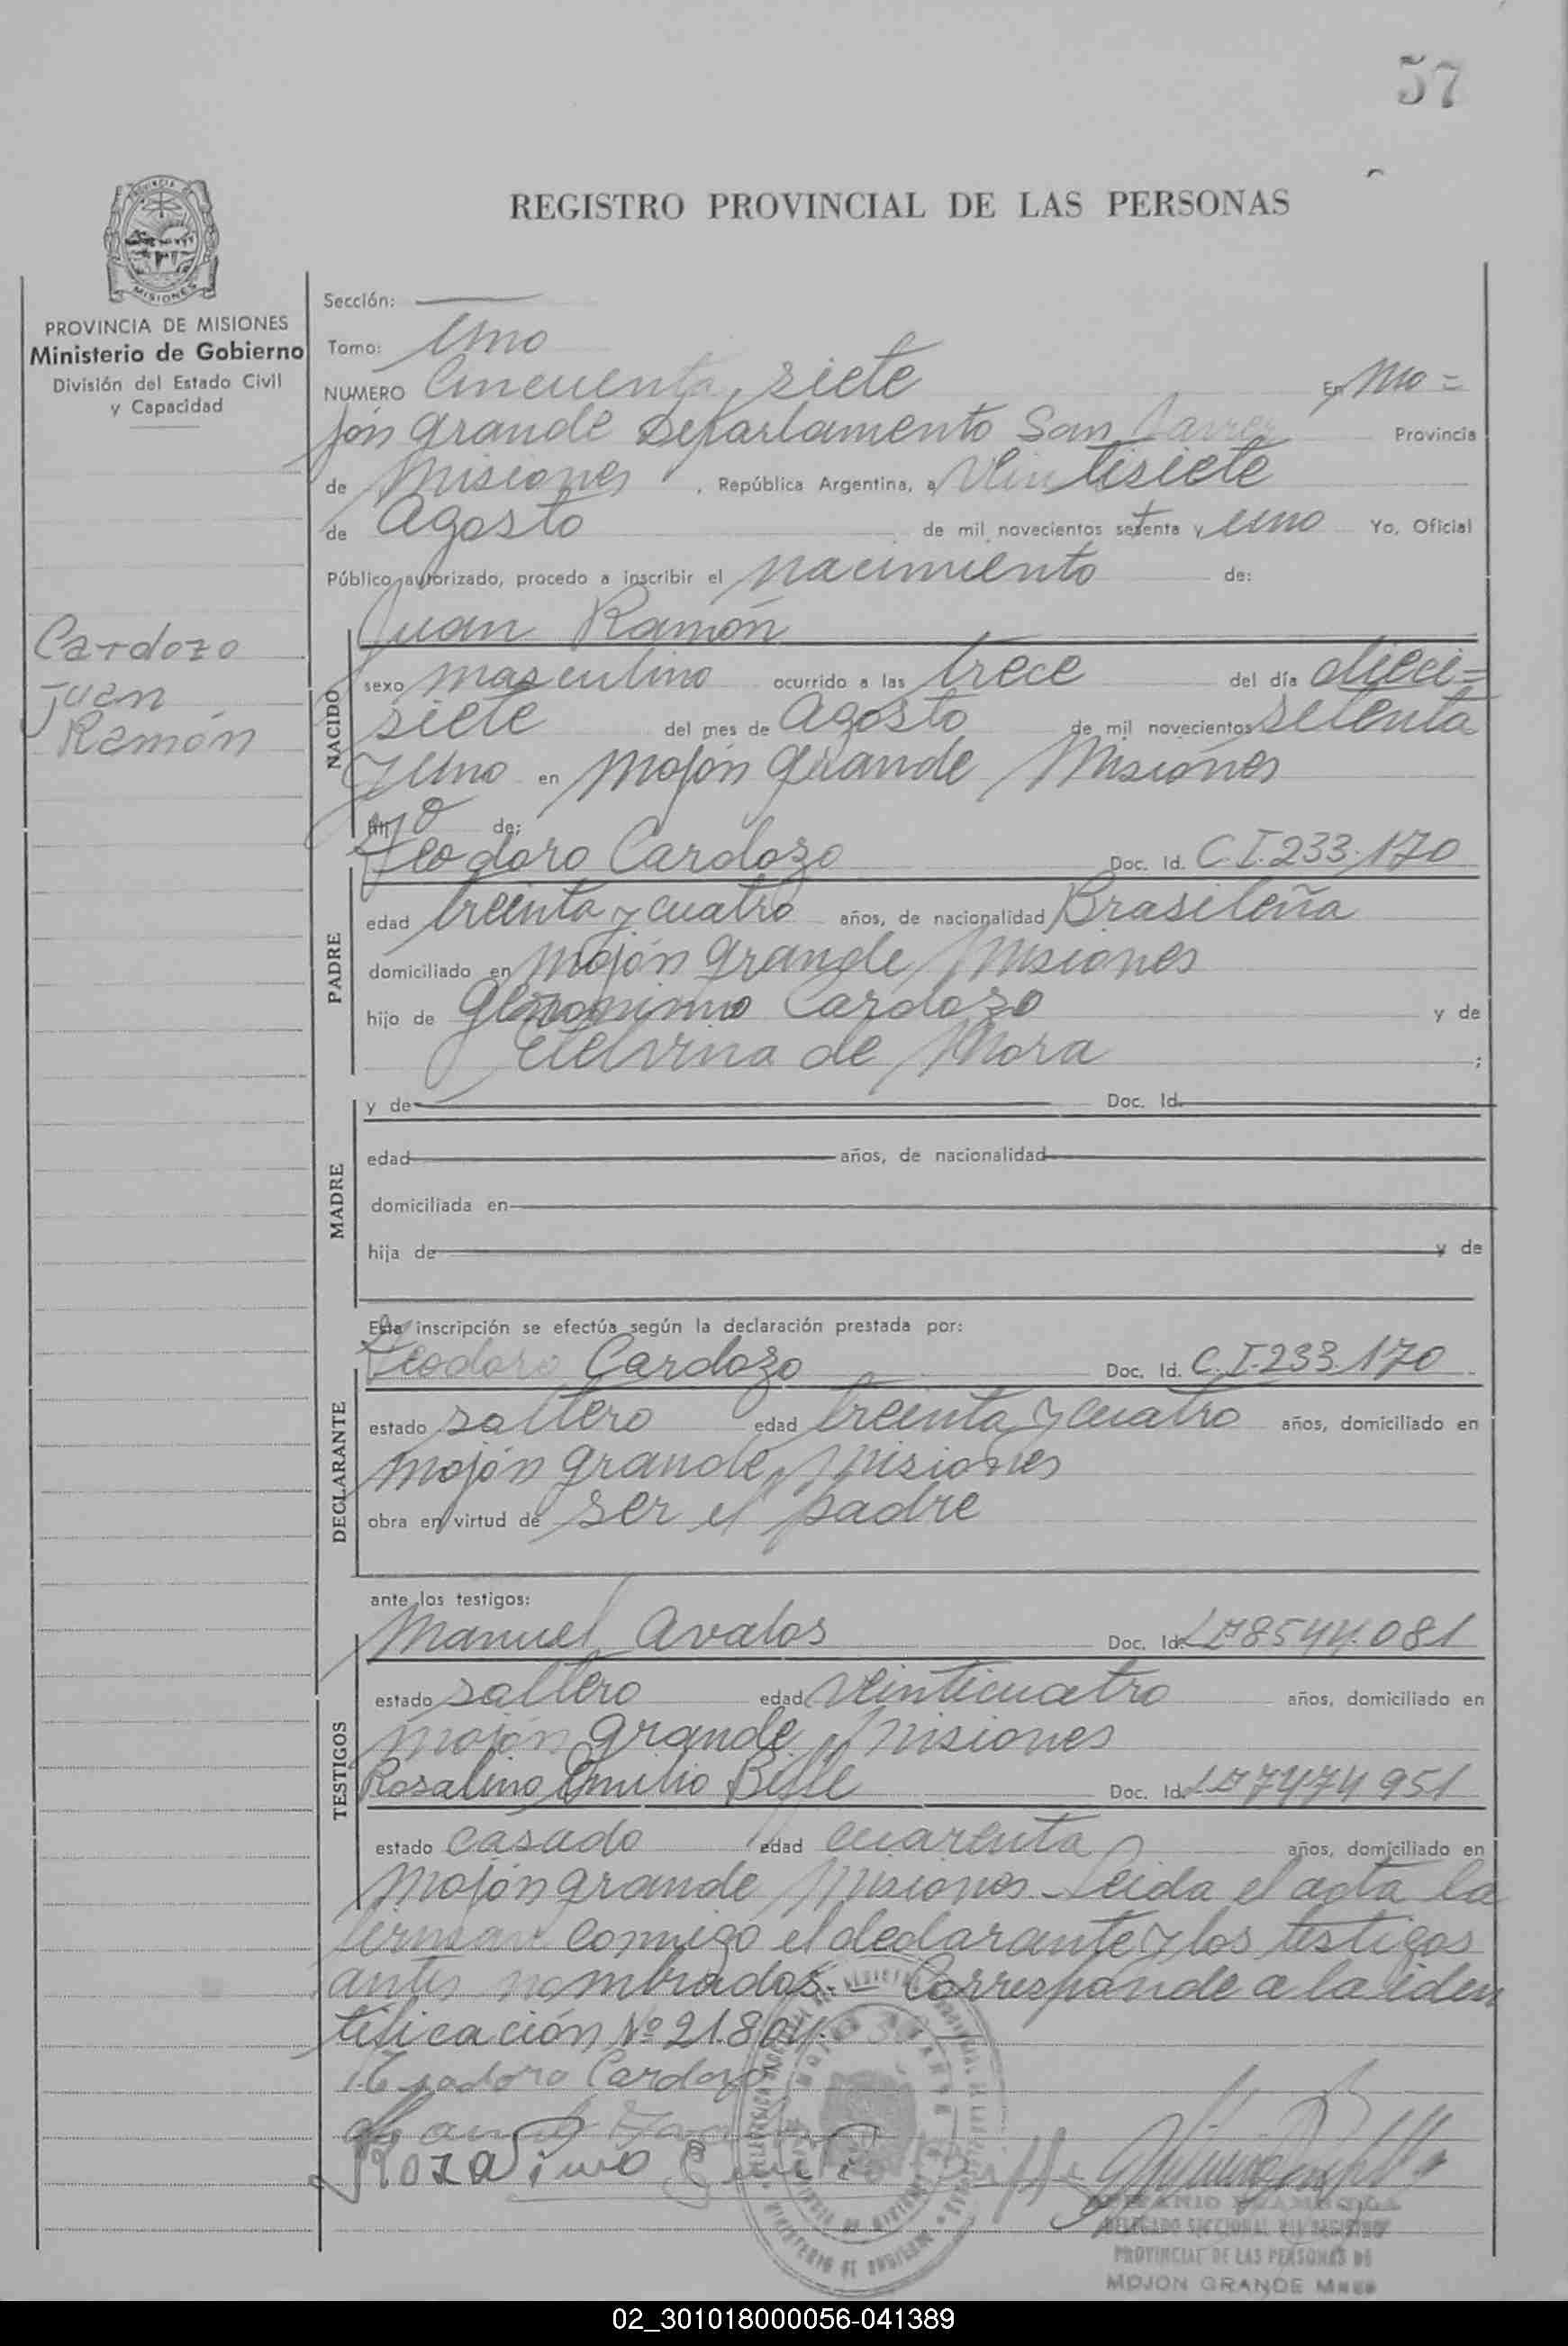 57
REGISTRO PROVINCIAL DE LAS PERSONAS
PROVINCIA DE MISIONES
Ministerio de Gobierno
División del Estado Civil
y Capacidad
Cardozo
Juan
Ramón
Sección:
Tomo: Uno
NUMERO Cincuenta y siete En Mo=
jón grande Departamento San Javier Provincia
de Misiones, República Argentina, a Veintisiete
de Agosto de mil novecientos setenta y uno Yo, Oficial
Público autorizado, procedo a inscribir el nacimiento de:
Juan Ramón
NACIDO
sexo masculino ocurrido a las trece del día dieci=
siete del mes de Agosto de mil novecientos setenta
y uno en Mojón grande Misiones
hijo de:
Teodoro Cardozo Doc. Id. C.I.233.170
PADRE
edad treinta y cuatro años, de nacionalidad Brasileña
domiciliado en Mojón grande Misiones
hijo de Cardozo y de
Etelvina de Mora ;
MADRE
y de Doc. Id.
edad años, de nacionalidad
domiciliada en
hija de y de
Esta inscripción se efectúa según la declaración prestada por:
Teodoro Cardozo Doc. Id. C.I.233.170
DECLARANTE
estado soltero edad treinta y cuatro años, domiciliado en
Mojón grande, Misiones
obra en virtud de ser el padre
ante los testigos:
Manuel Avalos Doc. Id. 8544.081
TESTIGOS
estado soltero edad veinticuatro años, domiciliado en
Mojón grande Misiones
Rosalino Emilio Doc. Id. 7474951
estado casado edad cuarenta años, domiciliado en
Mojón grande Misiones Leida el acta la
firman conmigo el declarante y los testigos
antes nombrados.- Corresponde a la iden
tificación Nº 21.804.
Teodoro Cardozo
Rozalino
DELEGADO SECCIONAL DEL REGISTRO
PROVINCIAL DE LAS PERSONAS DE
MOJON GRANDE Mnes
02_301018000056-041389